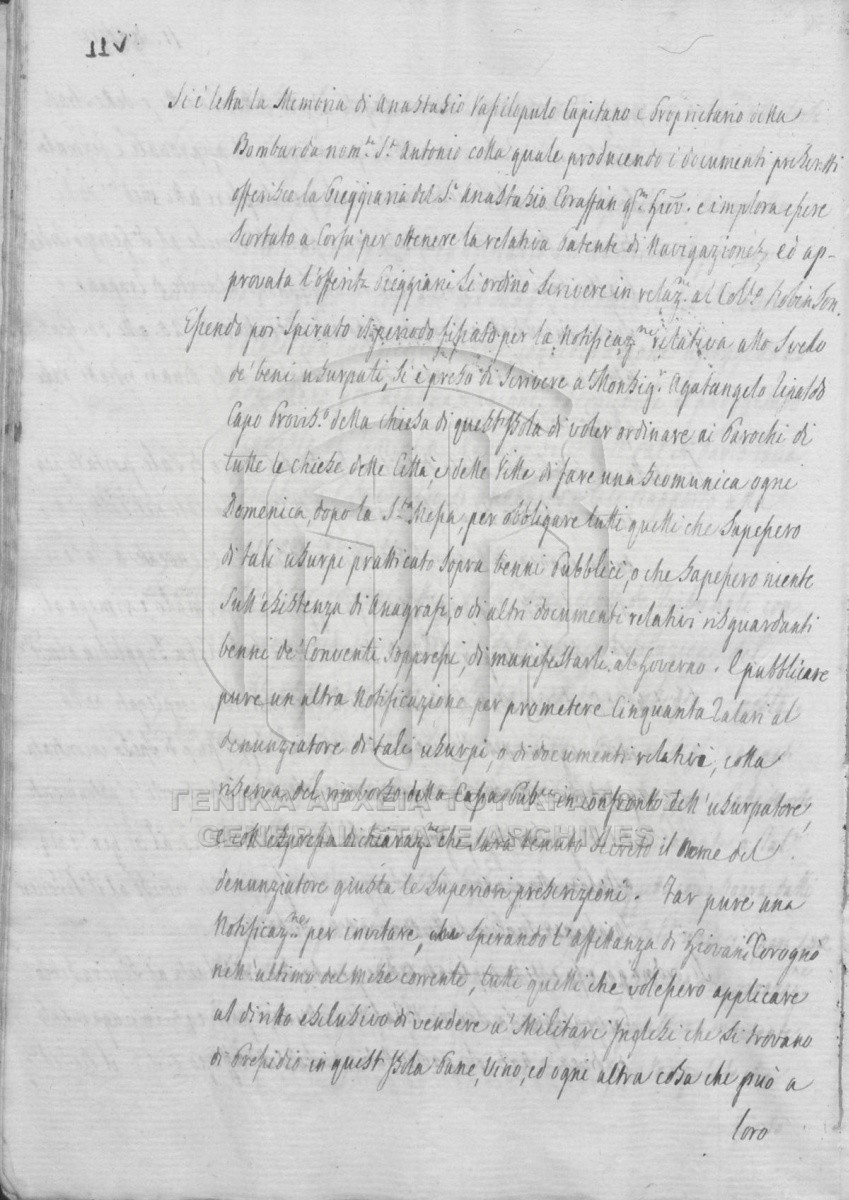 11v
Si è letta la Memoria di Anastasio Vassilopulo Capitano e Proprietario della
Bombarda nom.ta S.t Antonio colla quale producendo i documenti prescritti
offerisce la Pieggiaria del S.r Anastasio Coraffan q.m Giov. e implora essere
scortato a Corfù per ottenere la relativa Patente di Navigazione, ed ap-
provata l'offerita Pieggiaria si ordinò scrivere in relaz.ne al Col.lo Robinson.
Essendo poi spirato il periodo fissato per la Notificaz.ne relativa allo svelo
de' beni usurpati, si è preso di scrivere a Monsig.r Agatangelo
Capo Provis.o della Chiesa di quest'Isola di voler ordinare ai Parochi di
tutte le chiese delle Città, e delle Ville di fare una scomunica ogni
Domenica, dopo la S.ta Messa, per obbligare tutti quelli che sapessero
di tali usurpi pratticato sopra benni Pubblici, o che sapessero niente
sull'esistenza di Anagrafi, o di altri documenti relativi risguardanti
benni de' Conventi soppressi, di munifestarli al Governo. E pubblicare
pure un altra Notificazione per prometere Cinquanta Talari al
denunziatore di tali usurpi, o di documenti relativi, colla
riserva del rimborso della Cassa Pub.ca in confronto dell'usurpatore,
e coll'espressa dichiaraz.ne che sarà tenuto secreto il nome del
denunziatore giusta le Superiori prescrizioni. Far pure una
Notificaz.ne per invitare, spirando l'affittanza di Giovani Corognò
nell'ultimo del mese corrente, tutti quelli che volessero applicare
al diritto esclusivo di vendere a' Militari Inglesi che si trovano
di Presidio in quest'Isola Pane, Vino, ed ogni altra cosa che può a
loro
ΓΕΝΙΚΑ ΑΡΧΕΙΑ ΤΟΥ ΚΡΑΤΟΥΣ
GENERAL STATE ARCHIVES